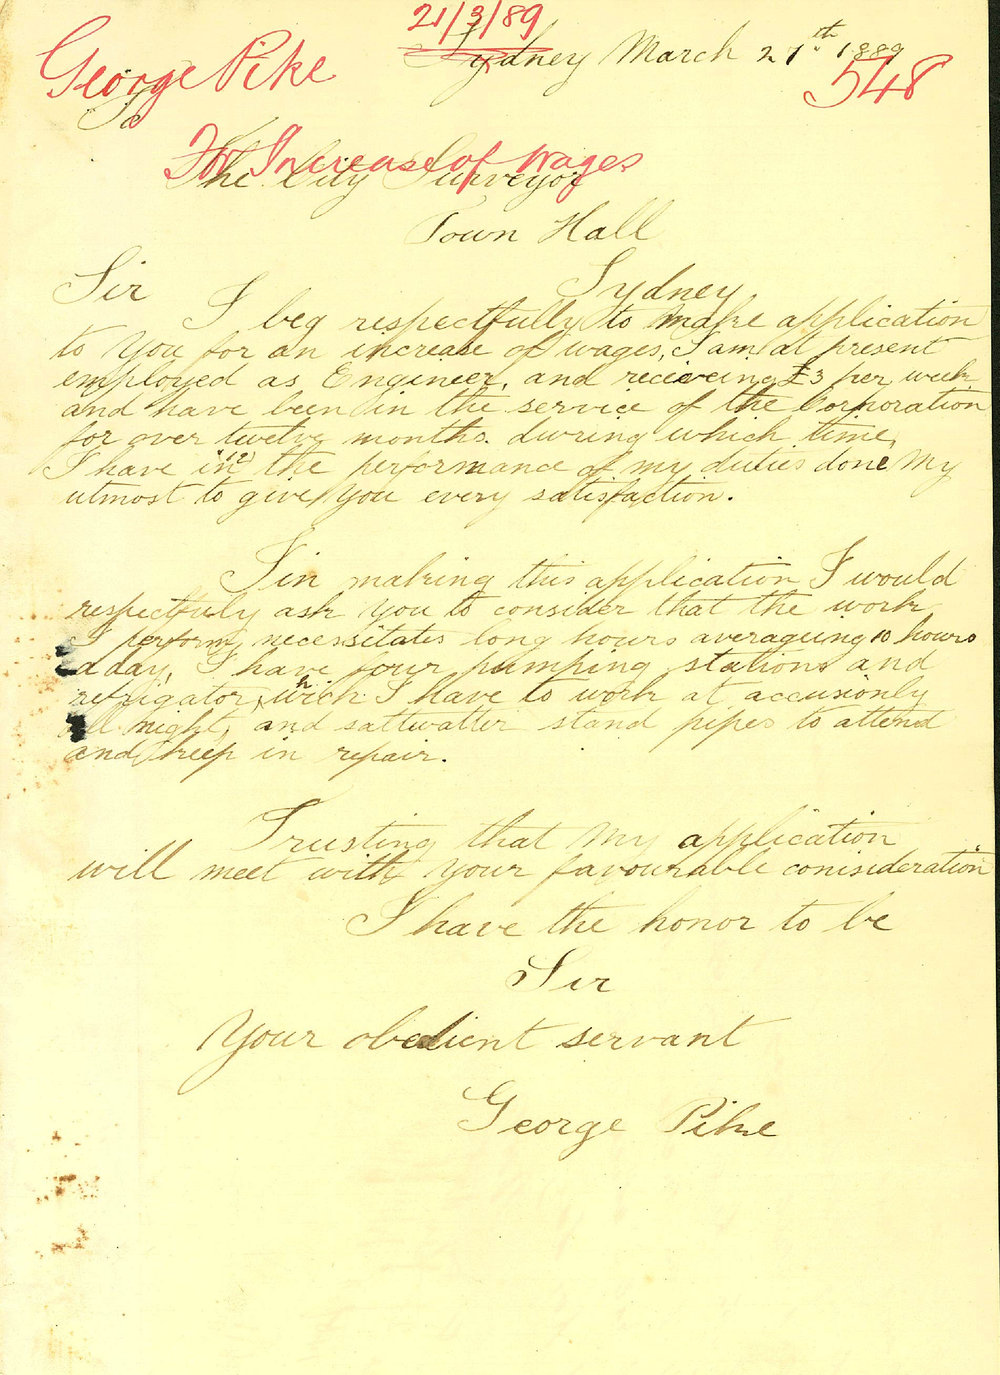 21/3/89
George Pike
Sydney March 21th 1889
548
To
For Increase of Wages
The City Surveyor
Town Hall
Sydney
Sir
I beg respectfully to make application
to you for an increase of wages, I am at present
employed as Engineer, and receiveing £3 per week
and have been in the service of the Corporation
for over twelve months. dwring which time,
I have in "12" the performance of my duties done My
utmost to give you every satisfaction.
I in making this application I would
respectfuly ask you to consider that the work
I perform, necessitates long hours averageing 10 hours
a day, I have four pumping stations and
refrigator, which I have to work at accusionly
all night, and saltwatter stand pipes to attend
and keep in repair.
Trusting that My application
will meet with your favourable conisideration
I have the honor to be
Sir
Your obedient servant
George Pike